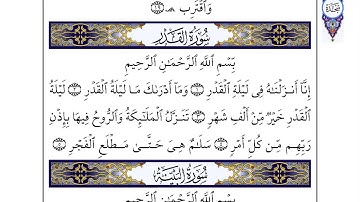 وَٱقْتَرِب ۩ ١٩
سُورَةُ ٱلْقَدْرِ
بِسْمِ ٱللَّهِ ٱلرَّحْمَٰنِ ٱلرَّحِيمِ
إِنَّآ أَنزَلْنَٰهُ فِى لَيْلَةِ ٱلْقَدْرِ ١ وَمَآ أَدْرَىٰكَ مَا لَيْلَةُ ٱلْقَدْرِ ٢ لَيْلَةُ
ٱلْقَدْرِ خَيْرٌ مِّنْ أَلْفِ شَهْرٍ ٣ تَنَزَّلُ ٱلْمَلَٰٓئِكَةُ وَٱلرُّوحُ فِيهَا بِإِذْنِ
رَبِّهِم مِّن كُلِّ أَمْرٍ ٤ سَلَٰمٌ هِىَ حَتَّىٰ مَطْلَعِ ٱلْفَجْرِ ٥
سُورَةُ ٱلْبَيِّنَةِ
بِسْمِ ٱللَّهِ ٱلرَّحْمَٰنِ ٱلرَّحِيمِ